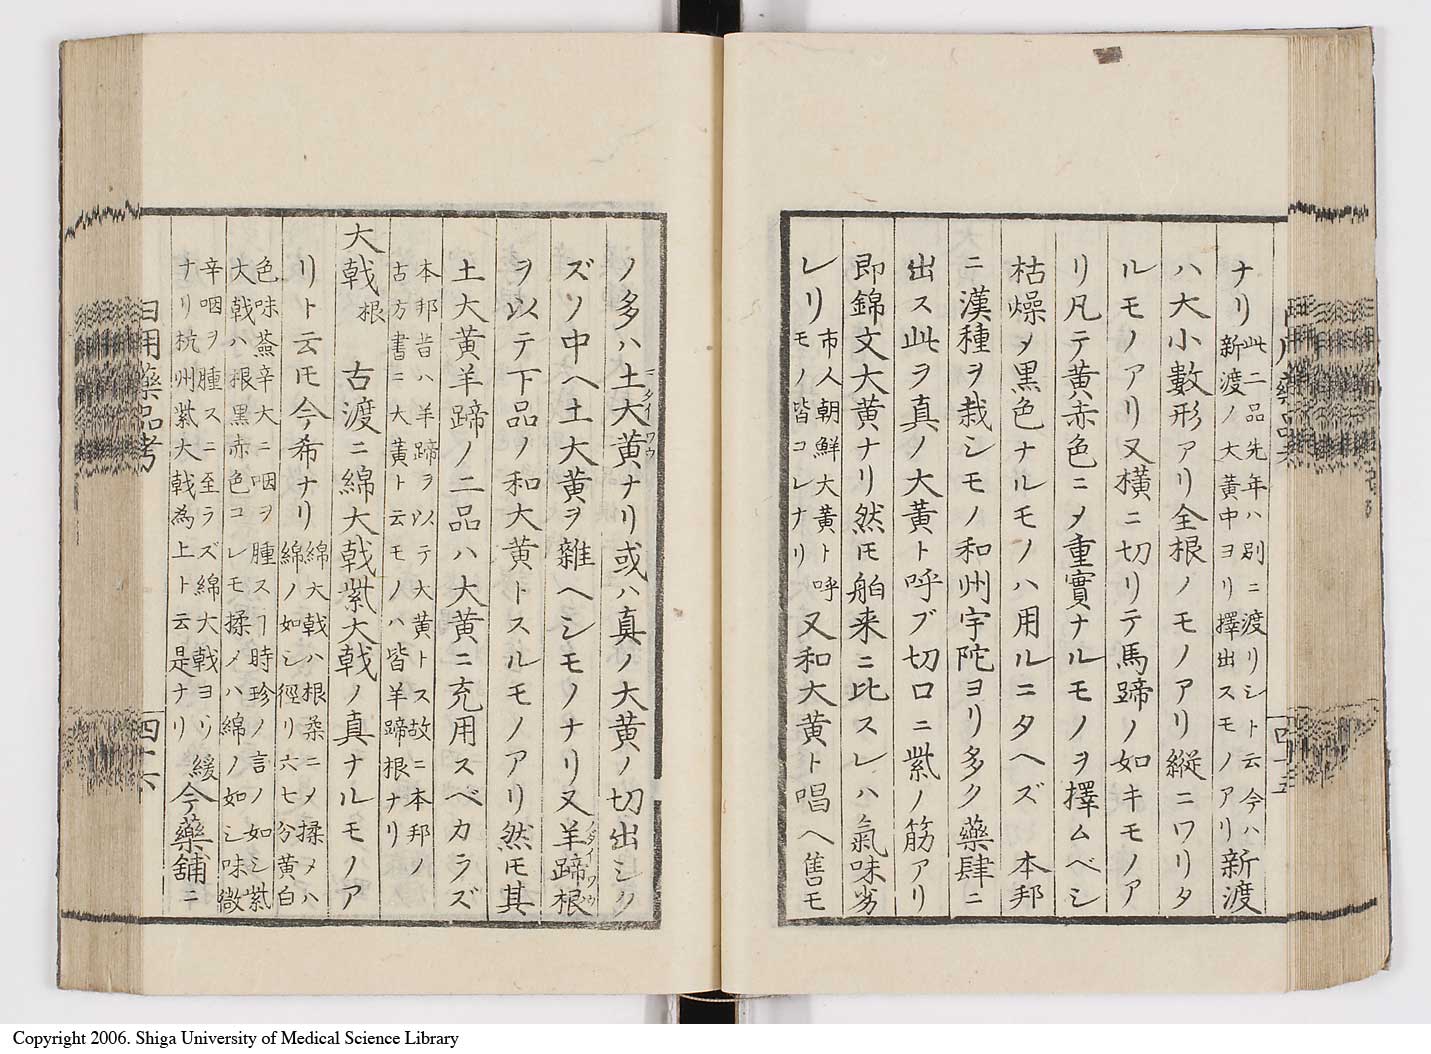 ナリ此二品先年ハ別ニ渡リシト云今ハ新渡ノ大黄中ヨリ擇出スモノアリ新渡
ハ大小數形アリ全根ノモノアリ縦ニワリタ
ルモノアリ又横ニ切リテ馬蹄ノ如キモノア
リ凡テ黄赤色ニメ重實ナルモノヲ擇ムベシ
枯燥ヲ黒色ナルモノハ用ルニタヘズ 本邦
ニ漢種ヲ栽シモノ和州宇陀ヨリ多ク藥肆ニ
出ス此ヲ真ノ大黄ト呼ブ切口ニ紫ノ筋アリ
即錦文大黄ナリ然モ舶来ニ比スレハ氣味劣
レリ市人朝鮮大黄ト呼モノ皆コレナリ又和大黄ト唱ヘ售モ
ノ多ハ土大黄ナリ或ハ真ノ大黄ノ切出シク
ズソ中ヘ土大黄ヲ雜ヘシモノナリ又羊蹄根
ヲ以テ下品ノ和大黄トスルモノアリ然モ其
土大黄羊蹄ノ二品ハ大黄ニ充用スベカラズ
本邦昔ハ羊蹄ヲ以テ大黄トス故ニ本邦ノ
古方書ニ大黄ト云モノハ皆羊蹄根ナリ
大戟根 古渡ニ綿大戟紫大戟ノ真ナルモノア
リト云モ今希ナリ綿大戟ハ根柔ニメ揉メハ綿ノ如シ徑リ六七分黄白
色味薟辛大ニ咽ヲ腫スヿ時珍ノ言ノ如シ紫
大戟ハ根黒赤色コレモ揉メハ綿ノ如シ味微
辛咽ヲ腫スニ至ラズ綿大戟ヨリ緩
ナリ杭州紫大戟為上ト云是ナリ今藥舖ニ
日用藥品考
四十六